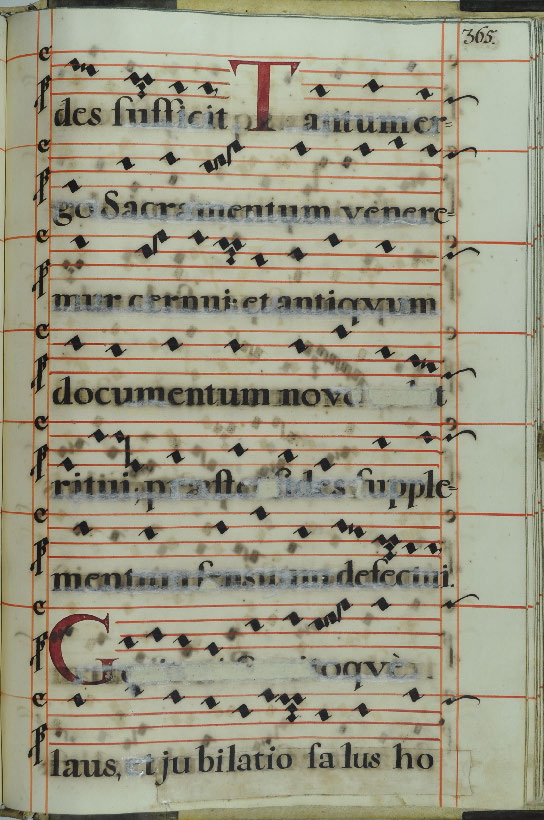 365.
des sufficit Tantum er-
go Sacramentum venere-
mur cernui: et antiqvum
documentum novo t
ritui, præste fides supple-
mentum sensuum defectui.
G oqvè
laus, et ju bilatio sa lus ho